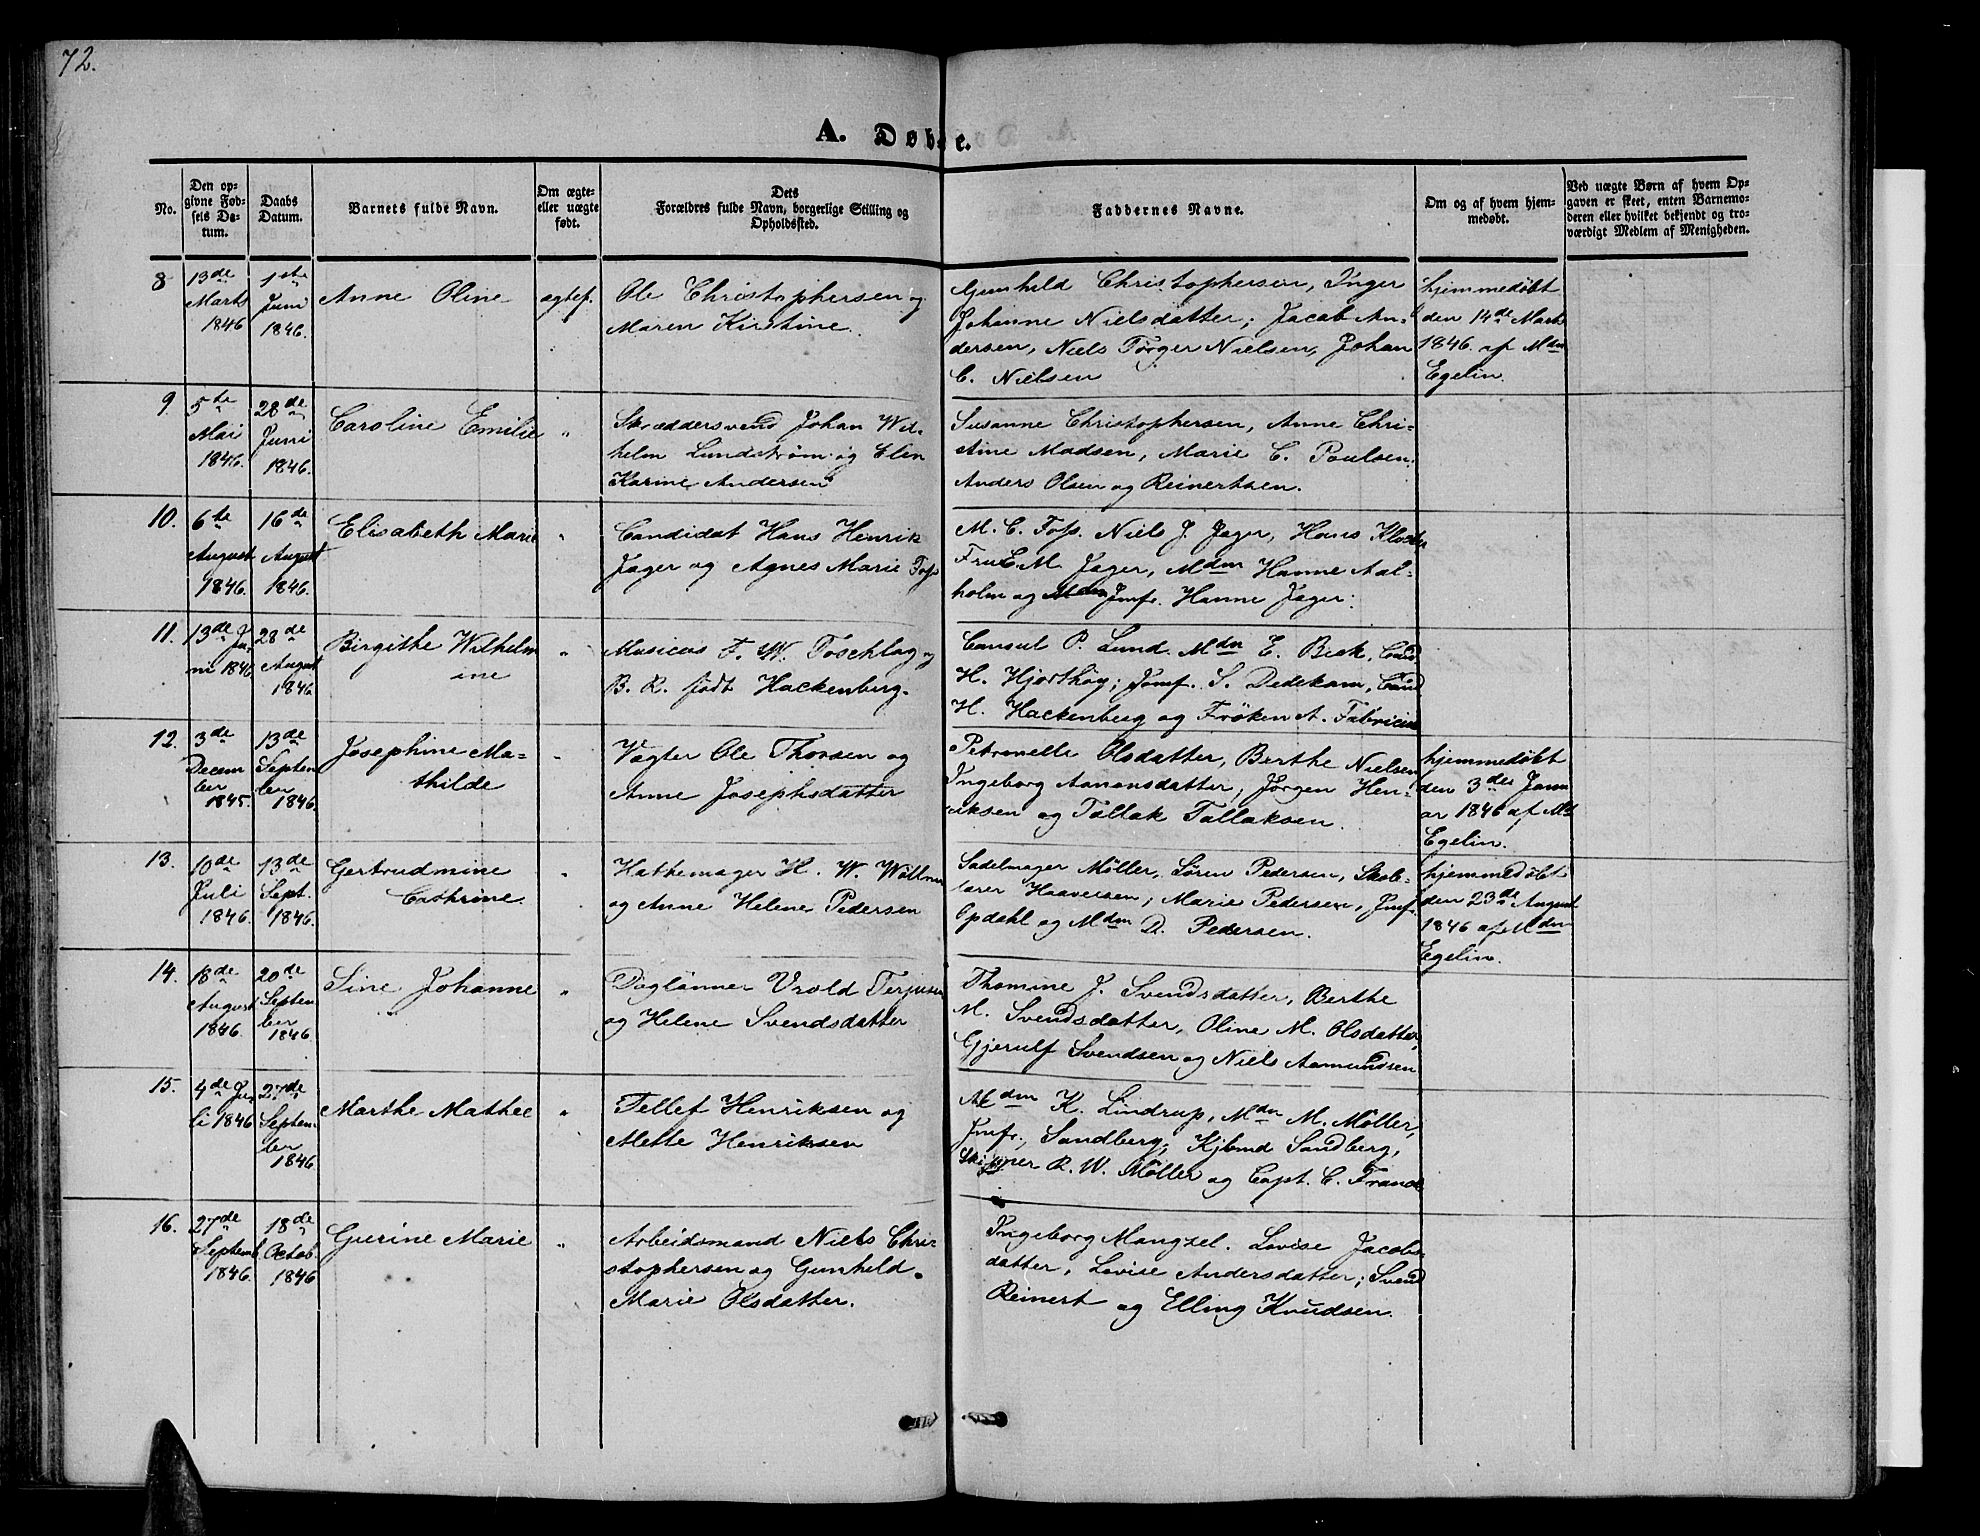 72.
A. Døbte.
No.
Den op-
givne Fød-
sels Da-
tum.
Daabs
Datum.
Barnets fulde Navn.
Om ægte-
eller uægte
født.
Dets
Forældres fulde Navn, borgerlige Stilling og
Opholdssted.
Faddernes Navne.
Om og af hvem hjem-
medøbt.
Ved uægte Børn af hvem Op-
gaven er skeet, enten Barnemo-
deren eller hvilket bekjendt og tro-
værdigt Medlem af Menigheden.
8
13de
Marts
1846
1ste
Juni
1846.
Anne Oline
ægtef.
Ole Christophersen og
Maren Kirstine.
Gunhild Christophersen, Inger
Johanne Nielsdatter; Jacob An-
dersen, Niels Törger Nielsen, Johan
C. Nielsen
hjemmedøbt
den 14de Marts
1846. af Mdm
Egelin.
9.
5te
Mai
1846.
28de
Juni
1846.
Caroline Emilie
"
Skræddersvend Johan Wil-
helm Lundstrøm og Elen
Karine Andersen
Susanne Christophersen, Anne Chri-
stine Madsen, Marie C. Poulsen.
Anders Olsen og Reinertsen.
10.
6te
August
1846.
16de
August
1846.
Elisabeth Marie
"
Candidat Hans Henrik
Jager og Agnes Marie Foss
M. C. Foss. Niels J. Jager, Hans Klocker
Fru E. M. Jager, Mdm Hanne Aal-
holm og Jmfr. Hanne Jager.
11.
13de Ju-
ni 1846
28de
August
1846
Birgithe Wilhelm
ine
"
Musicus F. W. Toschlag og
B. R. født Hackenberg.
Consul P. Lund. Mdm E. Beck, Cand
H. Hjorthøy; Jomf. S. Dedekam, Cand
H. Hackenberg og Frøken A. Fabricius
12.
3de
Decem
ber
1845.
13de
Septem
ber
1846.
Josephine Ma-
thilde
"
Vægter Ole Thorsen og
Anne Josephsdatter
Petronelle Olsdatter, Berthe Nielsen
Ingeborg Aanonsdatter, Jørgen Hen-
riksen og Tallak Tallaksen.
hjemmedøbt
den 3de Janu
ar 1846 af Md
Egelin.
13.
10de
Juli
1846.
13de
Sept.
1846.
Gertrudmine
Cathrine
"
Hattemager H. W. Wöllner
og Anne Helene Pedersen
Sadelmager Møller, Søren Pedersen, Skole-
lærer Haaversen, Marie Pedersen, Jmf.
Opdahl og Mdm D. Pedersen.
hjemmedøbt
den 23de August
1846 af Mdm
Egelin.
14.
18de
August
1846.
20de
Septem
ber
1846.
Sine Johanne
"
Daglønner Vrold Terjusen
og Helene Svendsdatter
Thomine J. Svendsdatter, Berthe
M. Svendsdatter, Oline M. Olsdatter,
Gjerulf Svendsen og Niels Aamundsen
15.
4de Ju-
li 1846
27de
Septem-
ber
1846.
Marthe Mathee
"
Tellef Henriksen og
Mette Henriksen
Mdm K. Lindrup, Mdm M. Møller,
Jmfr. Sandberg, Kjbmd Sandberg,
Skipper R. W. Møller og Capt. C. Franck
16.
27de
Septemb.
1846.
18de
Octob.
1846
Gurine Marie
"
Arbeidsmand Niels Chri-
stophersen og Gunhild
Marie Olsdatter.
Ingeborg Mangsel. Lovise Jacobs-
datter, Lovise Andersdatter; Svend
Reinert og Elling Knudsen.